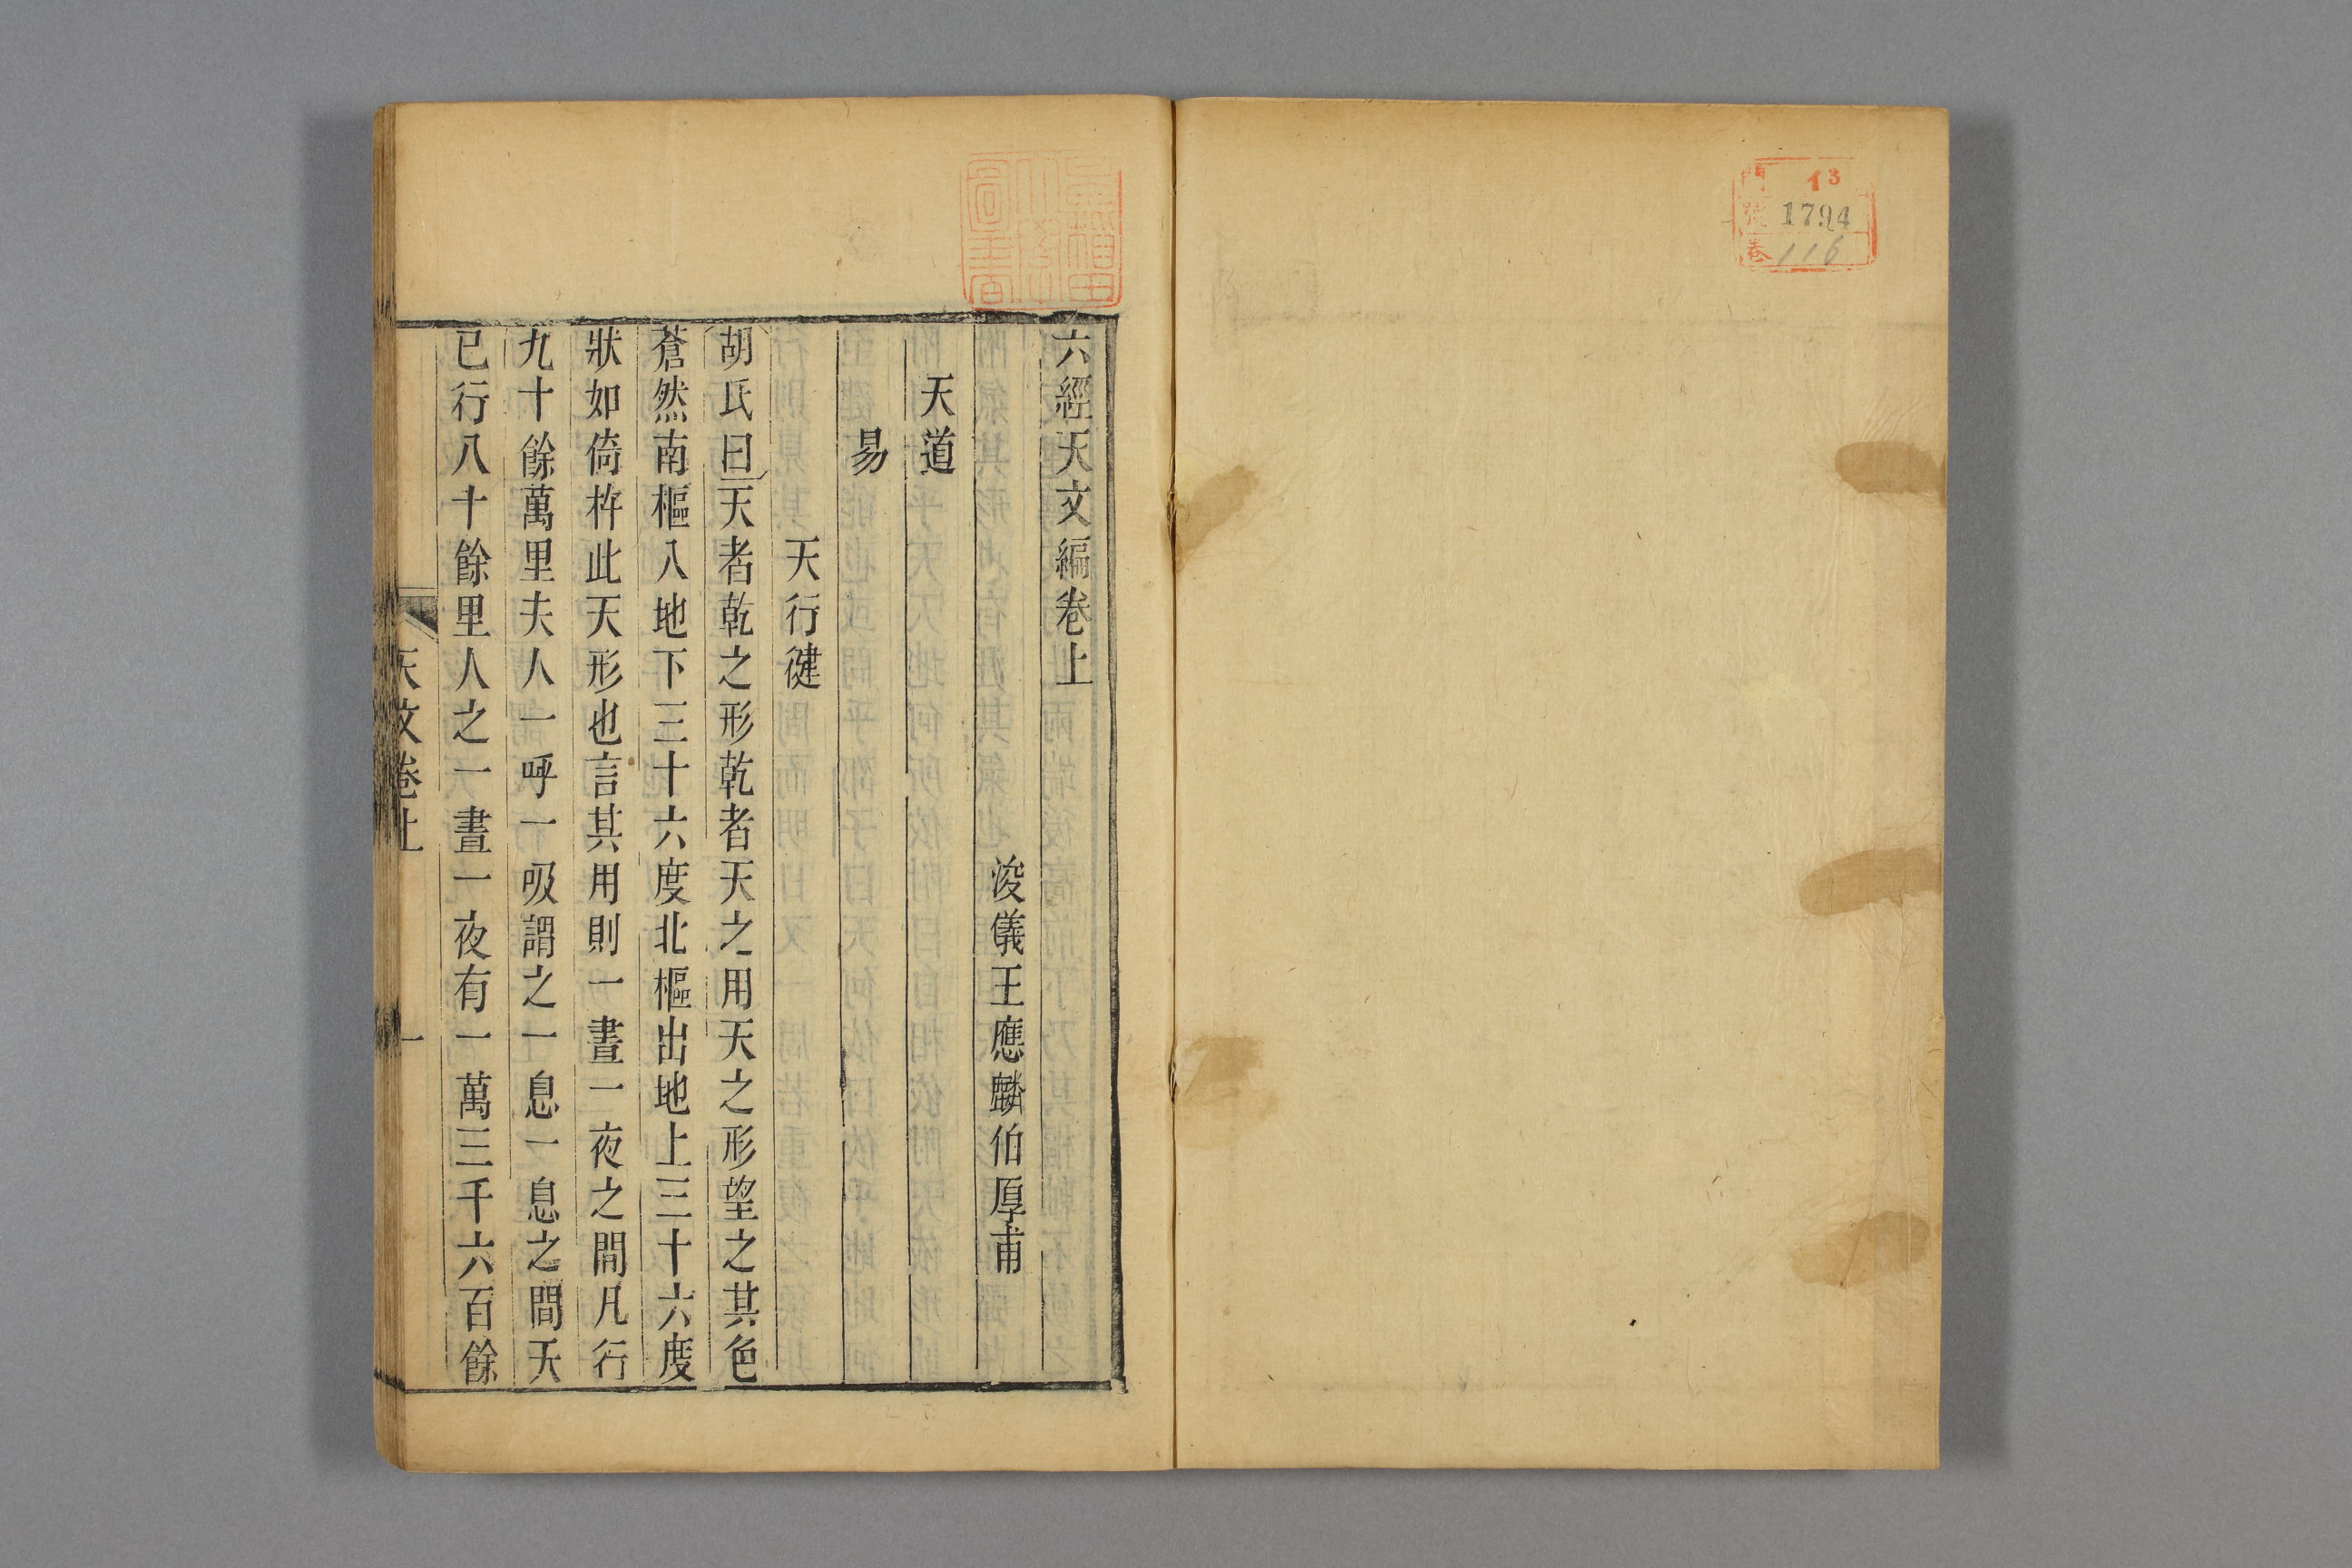 門 13
號 1794
卷 116
六經天文編卷上
浚儀王應麟伯厚甫
天道
易
天行健
胡氏曰天者乾之形乾者天之用天之形望之其色
蒼然南樞入地下三十六度北樞出地上三十六度
狀如倚杵此天形也言其用則一晝一夜之間凡行
九十餘萬里夫人一呼一吸謂之一息一息之間天
已行八十餘里人之一晝一夜有一萬三千六百餘
天文卷上 一